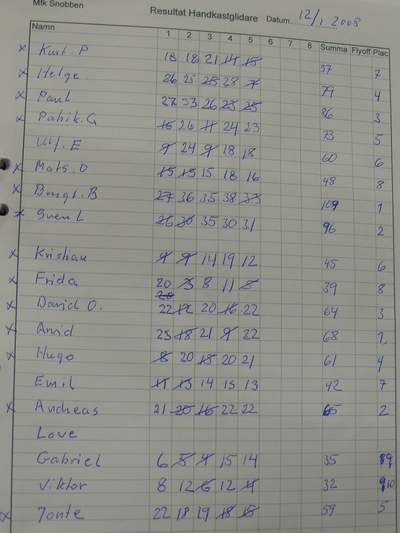 Mfk Snobben Resultat Handkastglidare Datum 12/1 2008
Namn 1 2 3 4 5 6 7 8 Summa Flyoff Plac
x Kurt. P 18 18 21 14 15 57 7
x Helge 26 25 25 28 7 79 4
x Paul 27 33 26 23 25 86 3
x Patrik. G 15 26 11 24 23 73 5
Ulf. E 9 24 9 18 18 60 6
x Mats. O 15 15 15 18 16 48 8
x Bengt. B 27 36 35 38 33 109 1
x Sven L 26 30 35 30 31 96 2
x Krishan 9 9 14 19 12 45 6
x Frida 20 8 11 8 39 8
x David O. 22 12 20 16 22 64 3
x Arvid 25 18 21 9 22 68 1
x Hugo 8 20 18 20 21 61 4
Emil 11 13 14 15 13 42 7
x Andreas 21 20 16 22 22 65 2
Love
Gabriel 6 15 14 35 9
Viktor 8 12 6 12 32 10
x Jonte 22 18 19 18 18 59 5